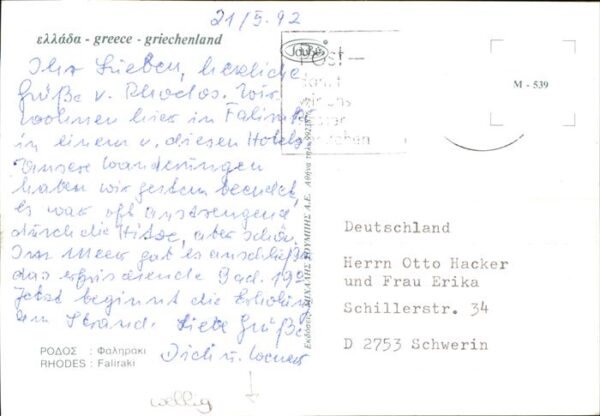 21/5.92
ελλάδα - greece - griechenland
Ihr Lieben, herzliche
Grüße v. Rhodos. Wir
wohnen hier in Faliraki
in einem v. diesen Hotels
Unsere Wanderungen
haben wir gestern beendet,
es war oft anstrengend
durch die Hitze, aber schön.
Im Meer gab es anschließ.
das erfrischende Bad. 19°
Jetzt beginnt die Erholung
am Strand. Liebe Grüße
ΡΟΔΟΣ : Φαληράκι
RHODES : Faliraki
Post-
M - 539
Αθήνα
Deutschland
Herrn Otto Hacker
und Frau Erika
Schillerstr. 34
D 2753 Schwerin
wellig